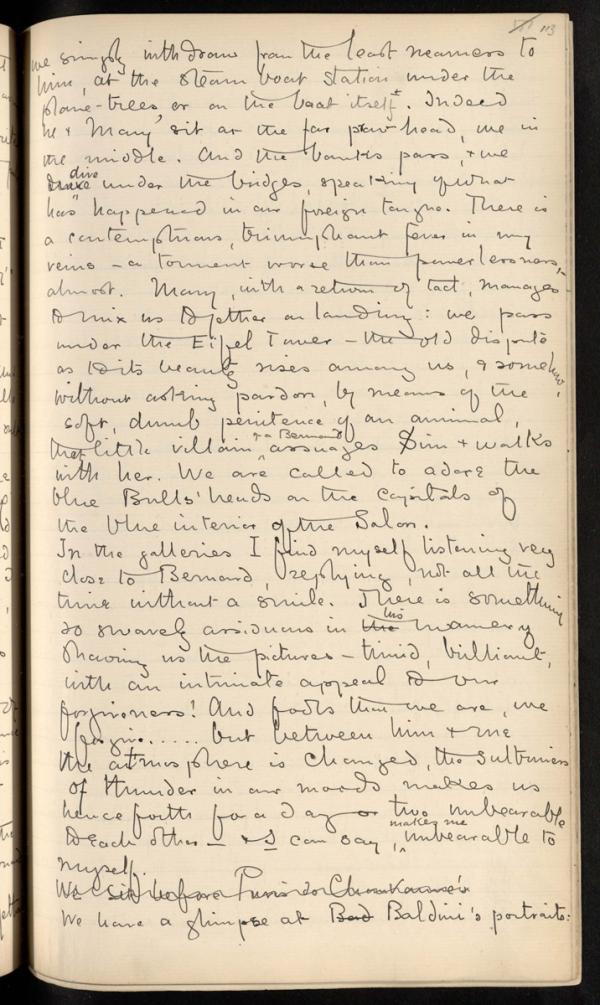 113
we simply withdraw from the least nearness to
him, at the steam boat station under the
plane-trees or on the boat itself. Indeed
he & Mary sit at the far prow-head, we in
the middle. And the banks pass, & we
dive under the bridges, speaking of what
has happened in our foreign tongue. There is
a contemptuous, triumphant fever in my
veins – a torment worse than powerlessness,
almost. Mary, with a return of tact, manages
to mix us together on landing: we pass
under the Eiffel Tower – the old dispute
as to its beauty rises among us, & somehow,
without asking pardon, by means of the
soft, dumb penitence of an animal,
that little villain, assuages Sim & walks
with her. We are called to adore the
blue Bulls' heads on the capitals of
the blue interior of the Salon.
In the galleries I find myself listening very
close to Bernard, replying, not all the
time without a smile. There is something
so suavely assiduous in the his manner of
showing us the pictures – timid, brilliant,
with an intimate appeal to our
forgiveness! And fools that we are, we
forgive..... but between him & me
the atmosphere is changed, the sultriness
of thunder in our moods makes us
henceforth for a day or two unbearable
to each other – & I can say, makes me unbearable to
myself.
We sit before Puvis de Chavannes's
We have a glimpse at Bad Baldini's portraits: